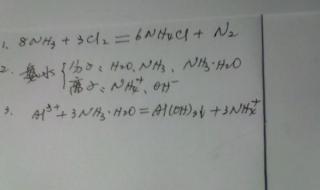 1. 8NH₃ + 3Cl₂ = 6NH₄Cl + N₂
2. 氨水 { 分子: H₂O、NH₃、NH₃·H₂O
离子: NH₄⁺、OH⁻
3. Al³⁺ + 3NH₃·H₂O = Al(OH)₃↓ + 3NH₄⁺